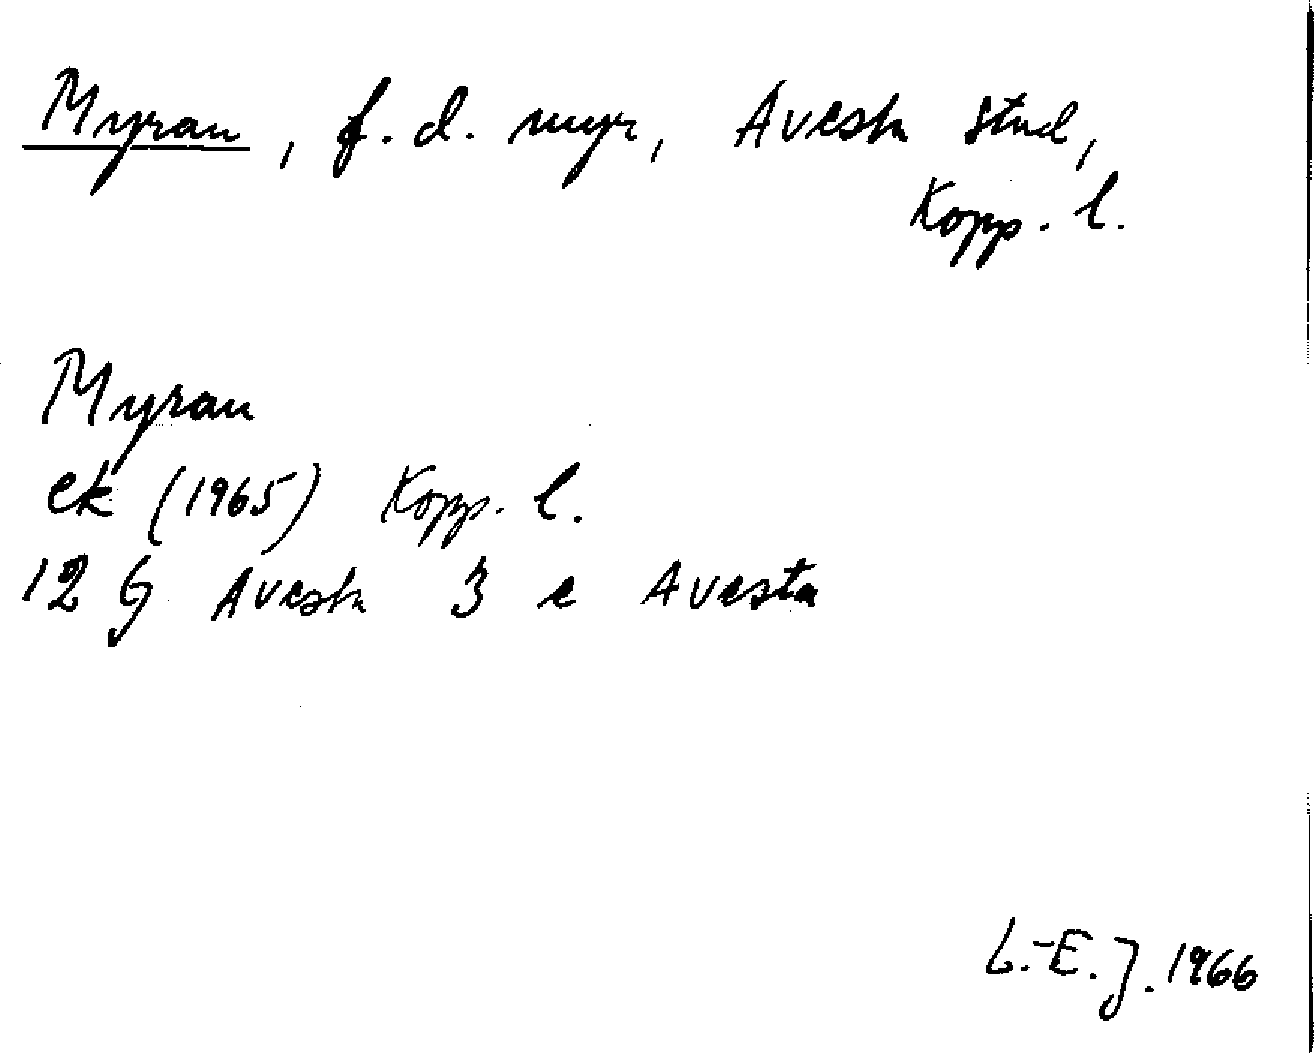 Myran, f.d. myr, Avesta stad,
Kopp. l.
Myran
ek (1965) Kopp. l.
12 G Avesta 3 e Avesta
L.-E. J. 1966